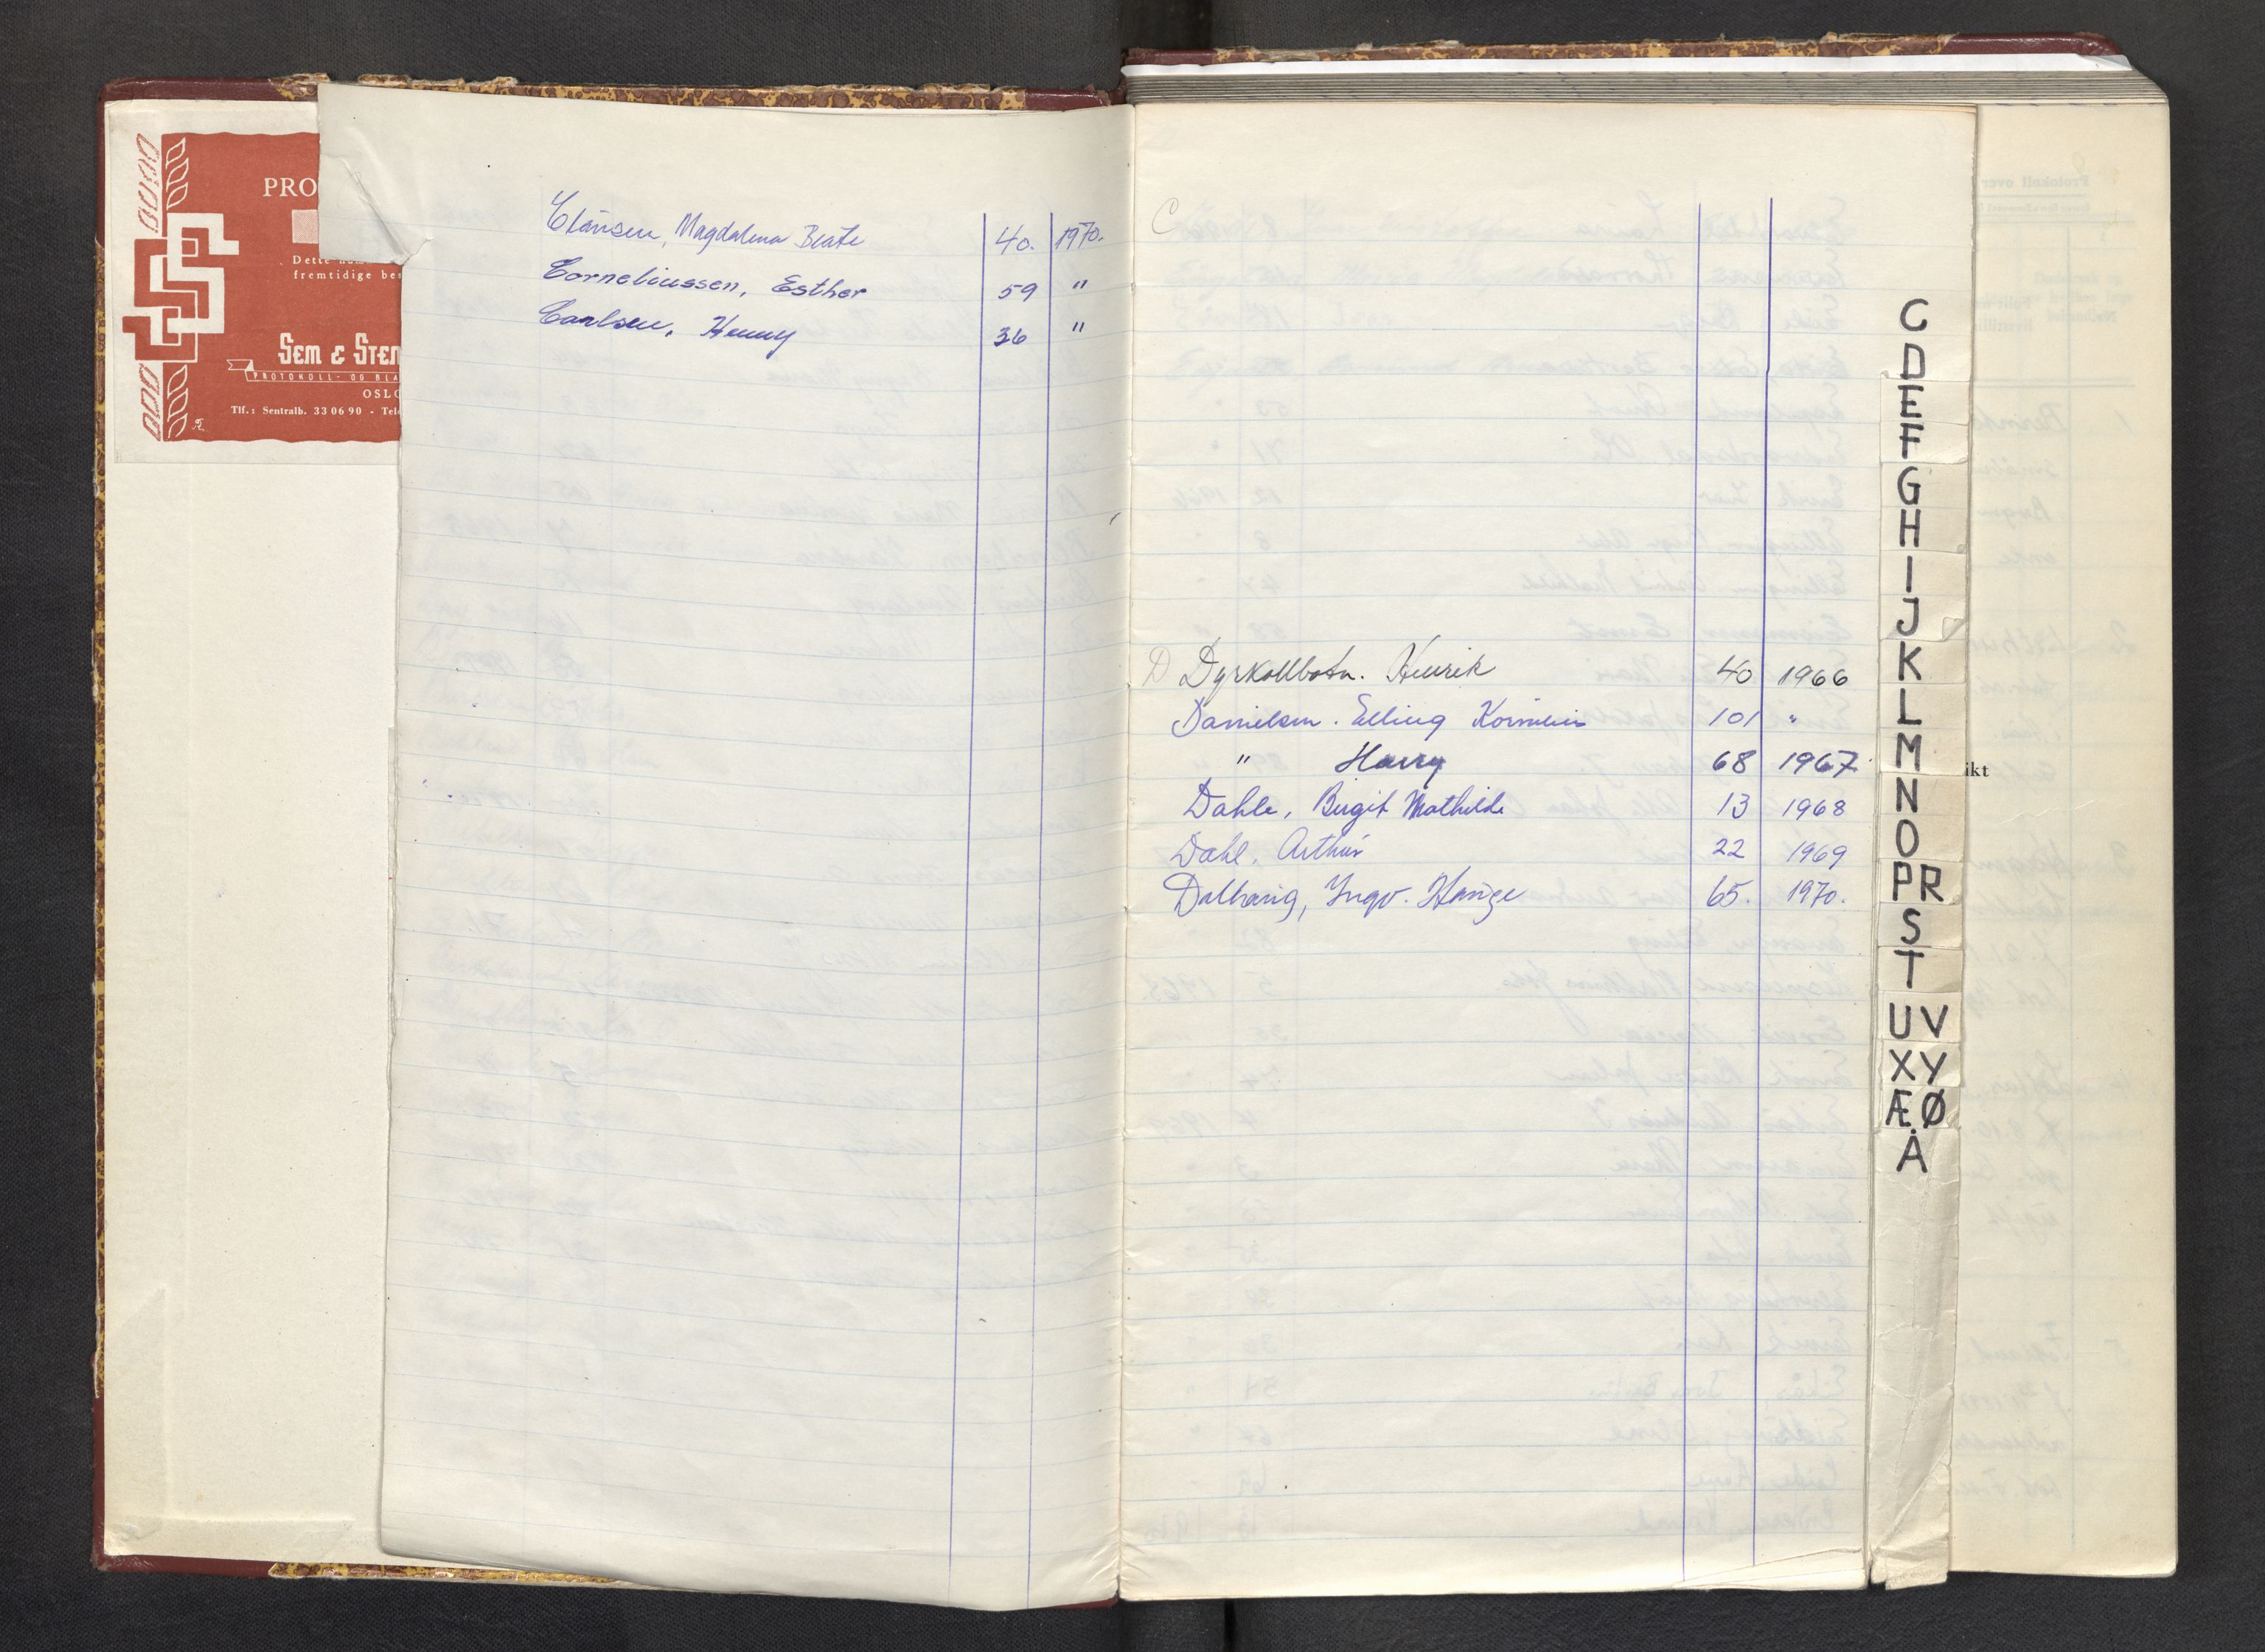 PRO
Dette
fremtidige bes
SEM & STEN
PROTOKOLL- OG BLA
OSLO
Tlf.: Sentralb. 33 06 90 - Tele
Clausen, Magdalena Beate 40. 1970.
Corneliussen, Esther 59 "
Carlsen, Henny 36 "
C
D Dyrkollbotn. Henrik 40 1966
Danielsen. Elling Kornelius 101 "
" Harry 68 1967.
Dahle, Birgit Mathilde 13 1968
Dahl. Arthur 22 1969
Dalhaug, Ingv. Hauge 65. 1970.
C
D
E
F
G
H
I
J
K
L
M
N
O
PR
S
T
UV
XY
ÆØ
Å
ikt